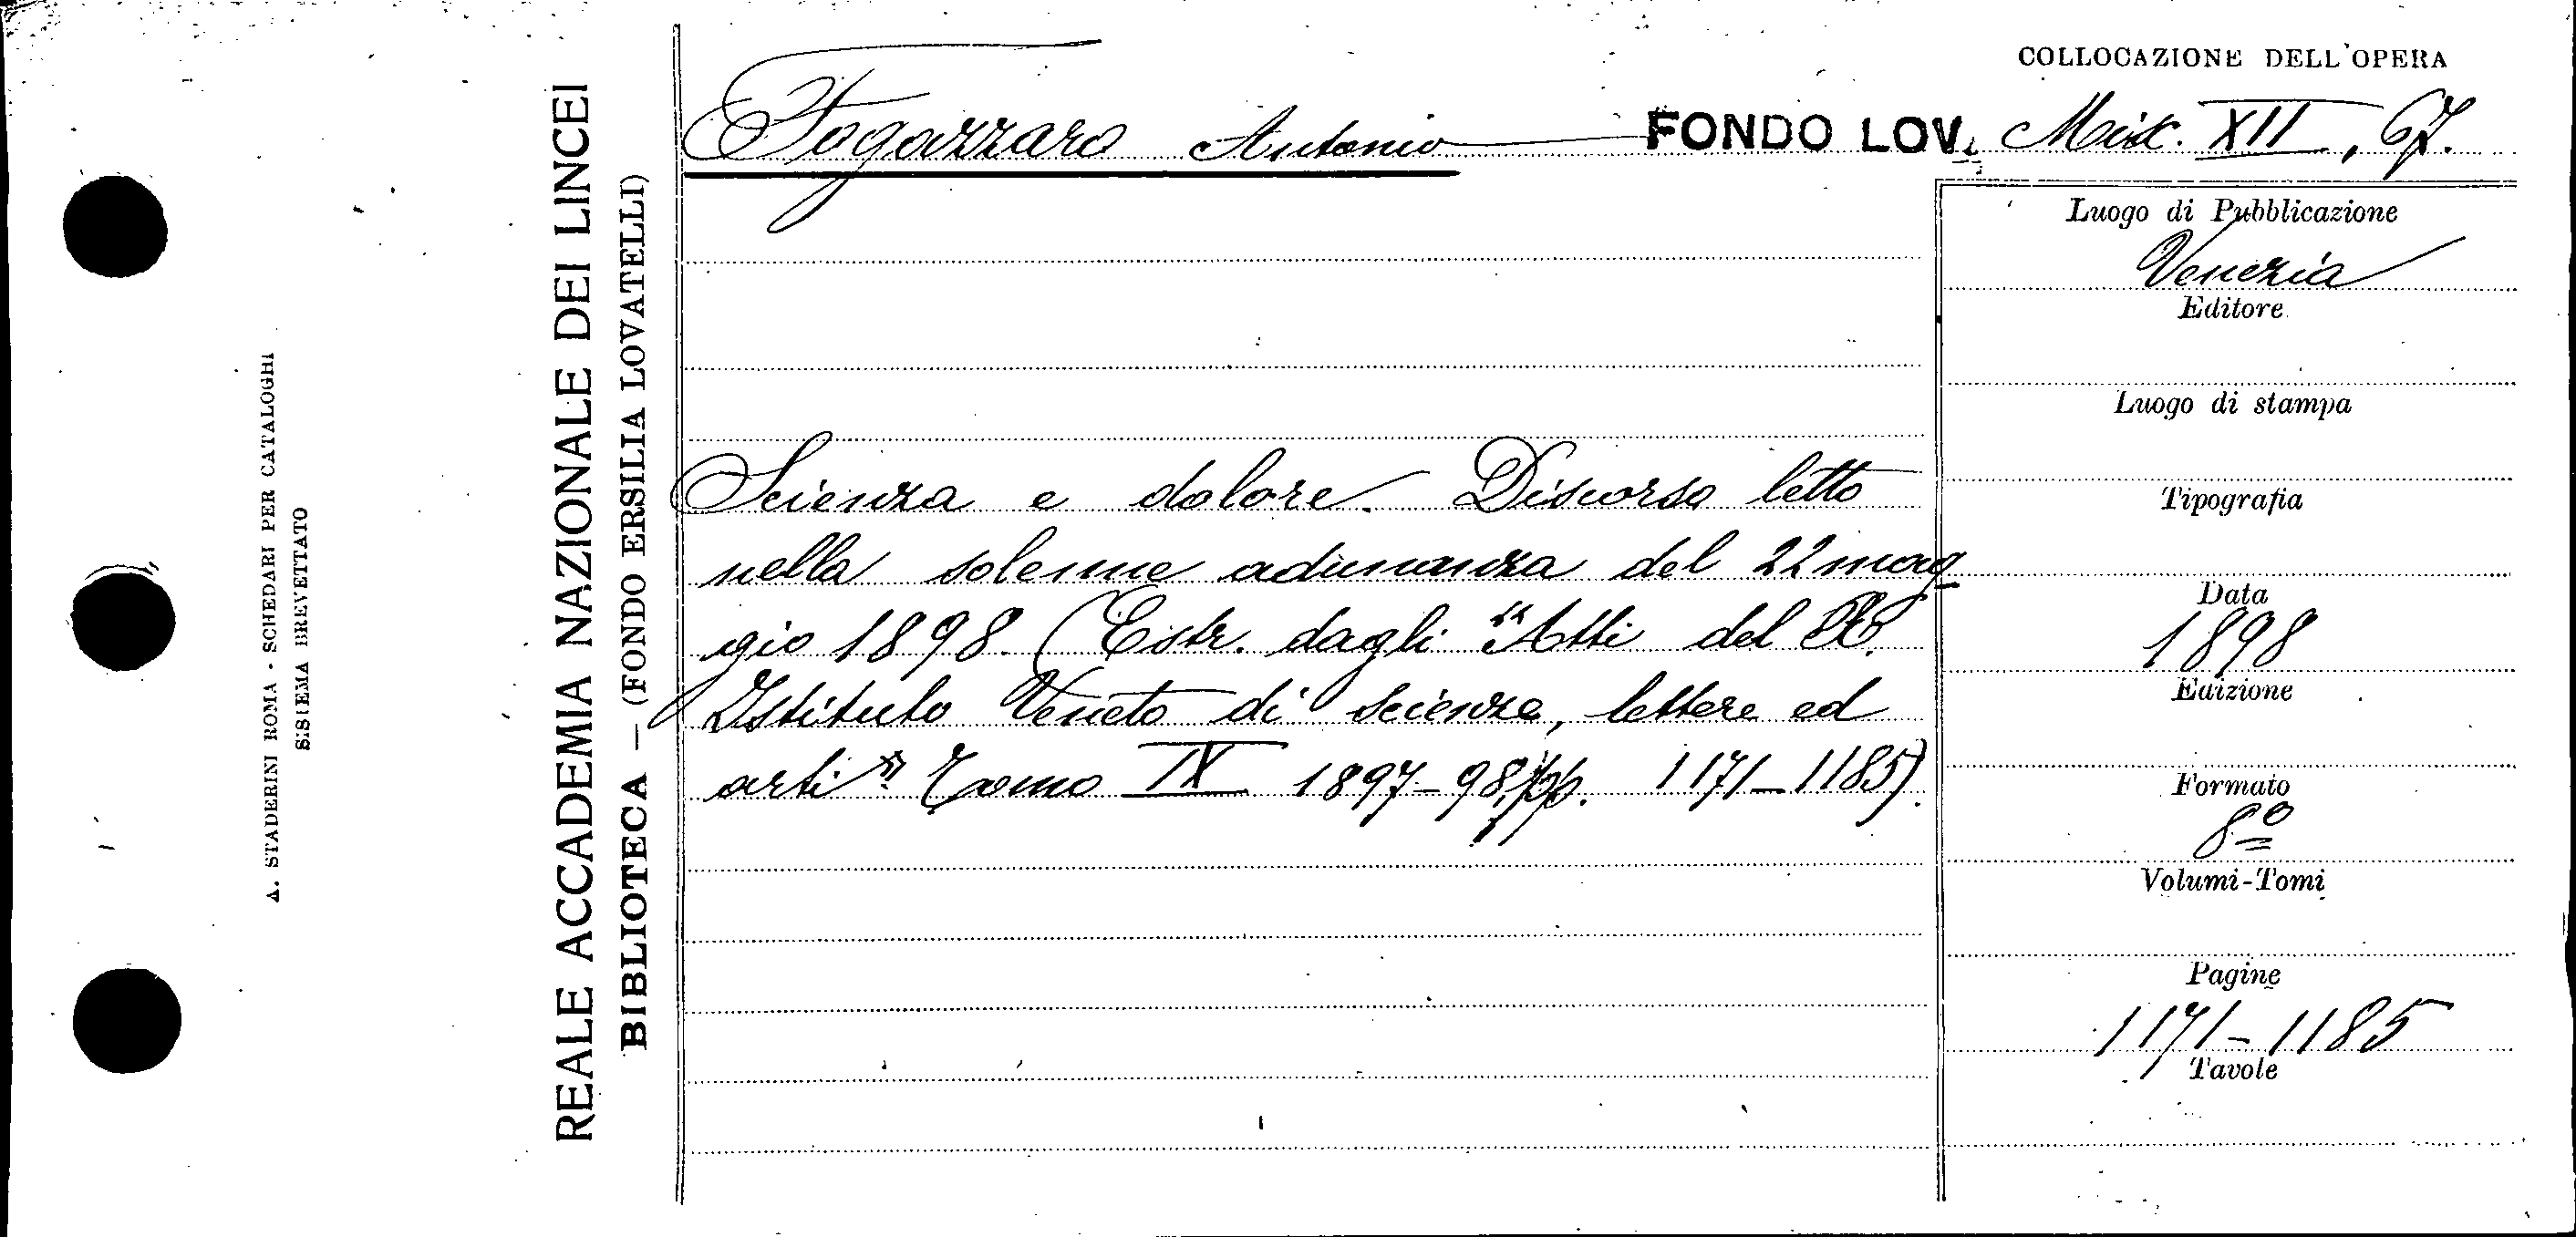 COLLOCAZIONE DELL'OPERA
Fogazzaro Antonio FONDO LOV. Misc. XII, 67.
Scienza e dolore. Discorso letto
nella solenne adunanza del 22 mag
gio 1898. (Estr. dagli "Atti del R.
Istituto Veneto di scienze, lettere ed
arti" Tomo IX 1897-98, pp. 1171-1185).
Luogo di Pubblicazione
Venezia
Editore
Luogo di stampa
Tipografia
Data
1898
Edizione
Formato
8º
Volumi-Tomi
Pagine
1171-1185
Tavole
REALE ACCADEMIA NAZIONALE DEI LINCEI
BIBLIOTECA - (FONDO ERSILIA LOVATELLI)
A. STADERINI ROMA - SCHEDARI PER CATALOGHI
SISTEMA BREVETTATO